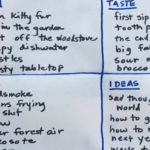 n kitty fur
in the garden
t off the woodstove
py dishwater
stles
ty tabletop
TASTE
first sip
tooth
the ca
big fa
sour m
brocco
smoke
ns frying
shit
w
er forest air
eosote
IDEAS
sad thou
world
how to g
how to m
next ye